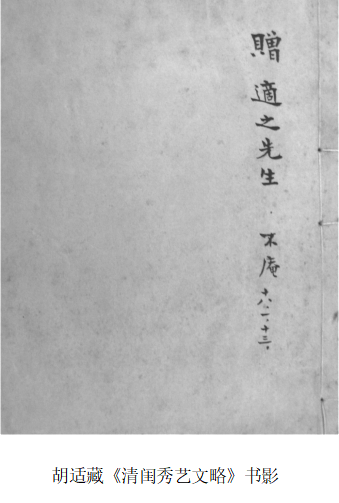 贈 適之先生
不庵 十八.二.十三.
胡适藏《清闺秀艺文略》书影